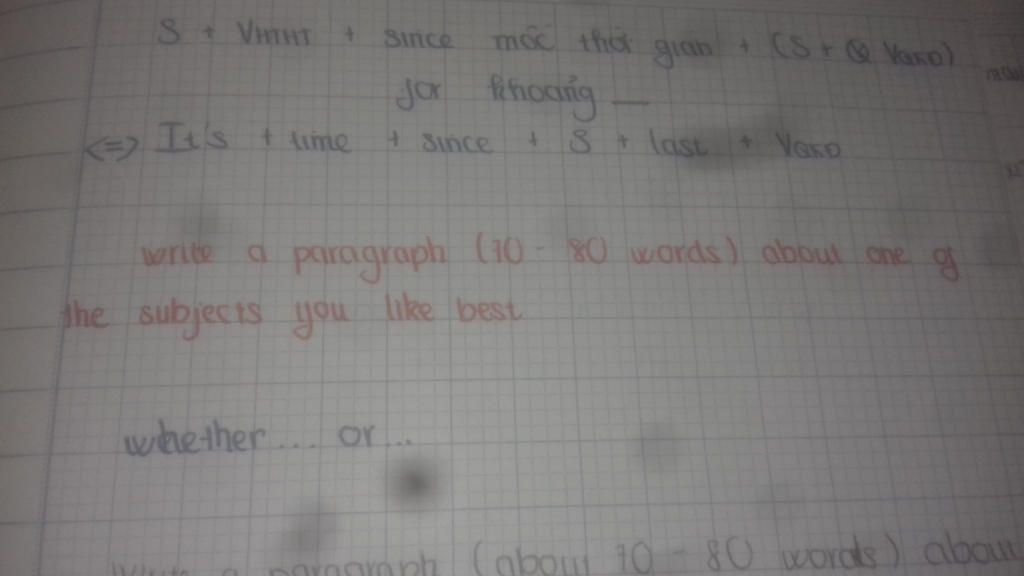 S + VHTHT + since mốc thời gian + (S + VQKĐ)
for khoảng —
<=> It's + time + since + S + last + VQKĐ
write a paragraph (70 - 80 words) about one of
the subjects you like best
whether ... or ...
Write a paragraph (about 70 - 80 words) about